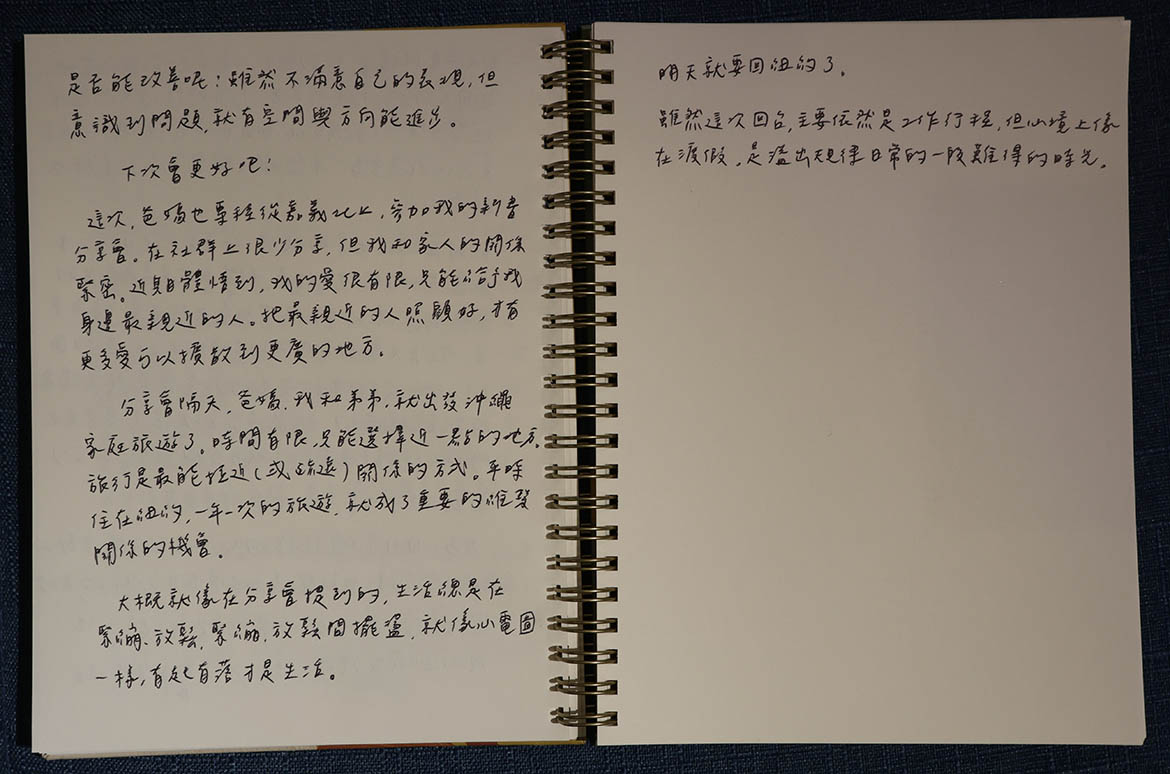 是否能改善呢！雖然不滿意自己的表現，但
意識到問題，就有空間與方向能進步。
下次會更好吧！
這次，爸媽也專程從嘉義北上，參加我的新書
分享會。在社群上很少分享，但我和家人的關係
緊密。近期體悟到，我的愛很有限，只能給予我
身邊最親近的人。把最親近的人照顧好，才有
更多愛可以擴散到更廣的地方。
分享會隔天，爸媽、我和弟弟，就出發沖繩
家庭旅遊了。時間有限，只能選擇近一點的地方。
旅行是最能拉近（或疏遠）關係的方式。平時
住在紐約，一年一次的旅遊，就成了重要的維繫
關係的機會。
大概就像在分享會提到的，生活總是在
緊繃、放鬆，緊繃，放鬆間擺盪，就像心電圖
一樣，有起有落才是生活。
明天就要回紐約了。
雖然這次回台，主要依然是工作行程，但心境上像
在渡假，是溢出規律日常的一段難得的時光。